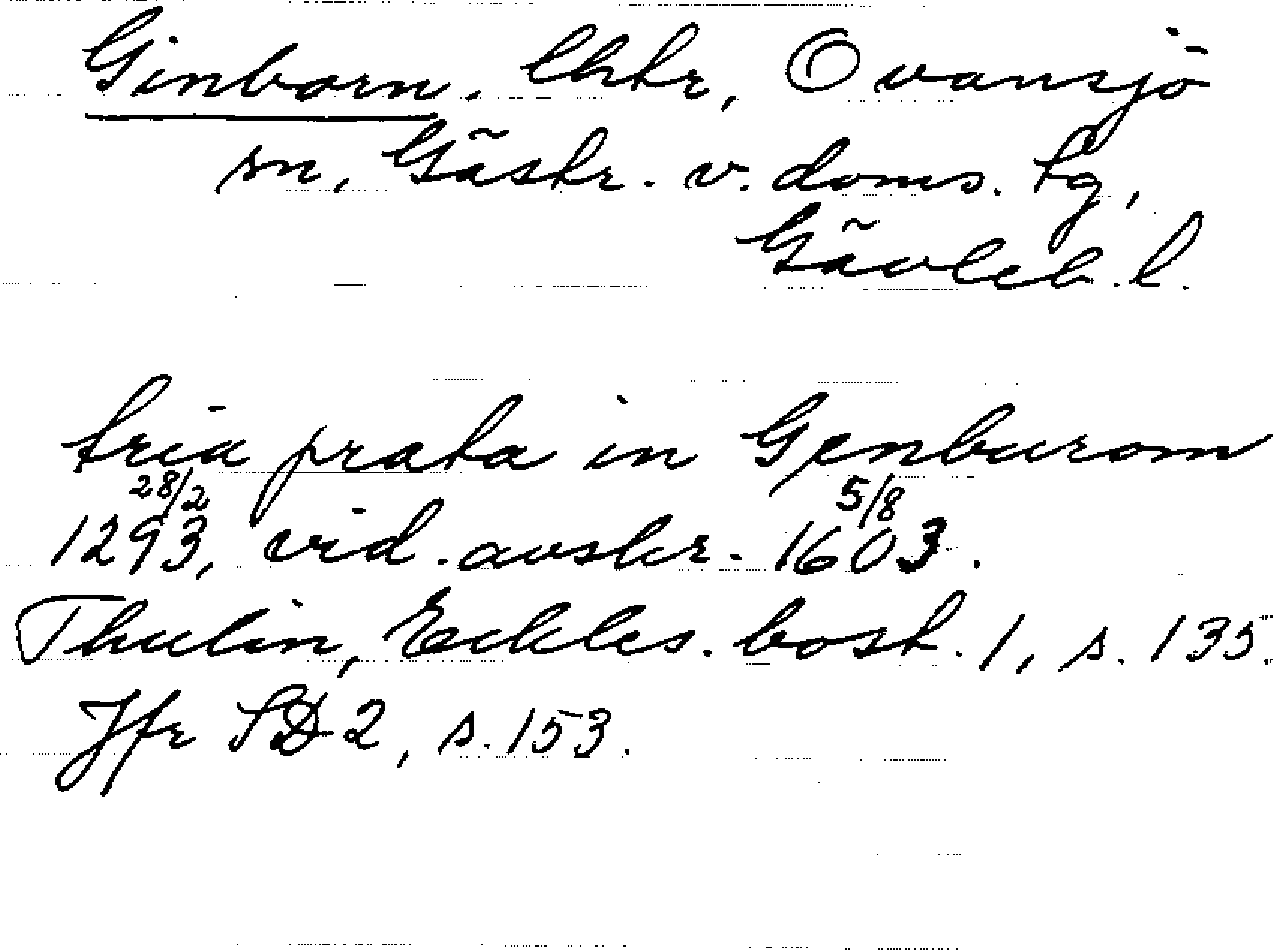 Ginborn. lhtr, Ovansjö
sn, Gästr. v. doms. tg,
Gävleb. l.
tria prata in Genburom
28/2 5/8
1293, vid. avskr. 1603.
Thulin, Eckles. bost. 1, s. 135.
Jfr SD 2, s. 153.